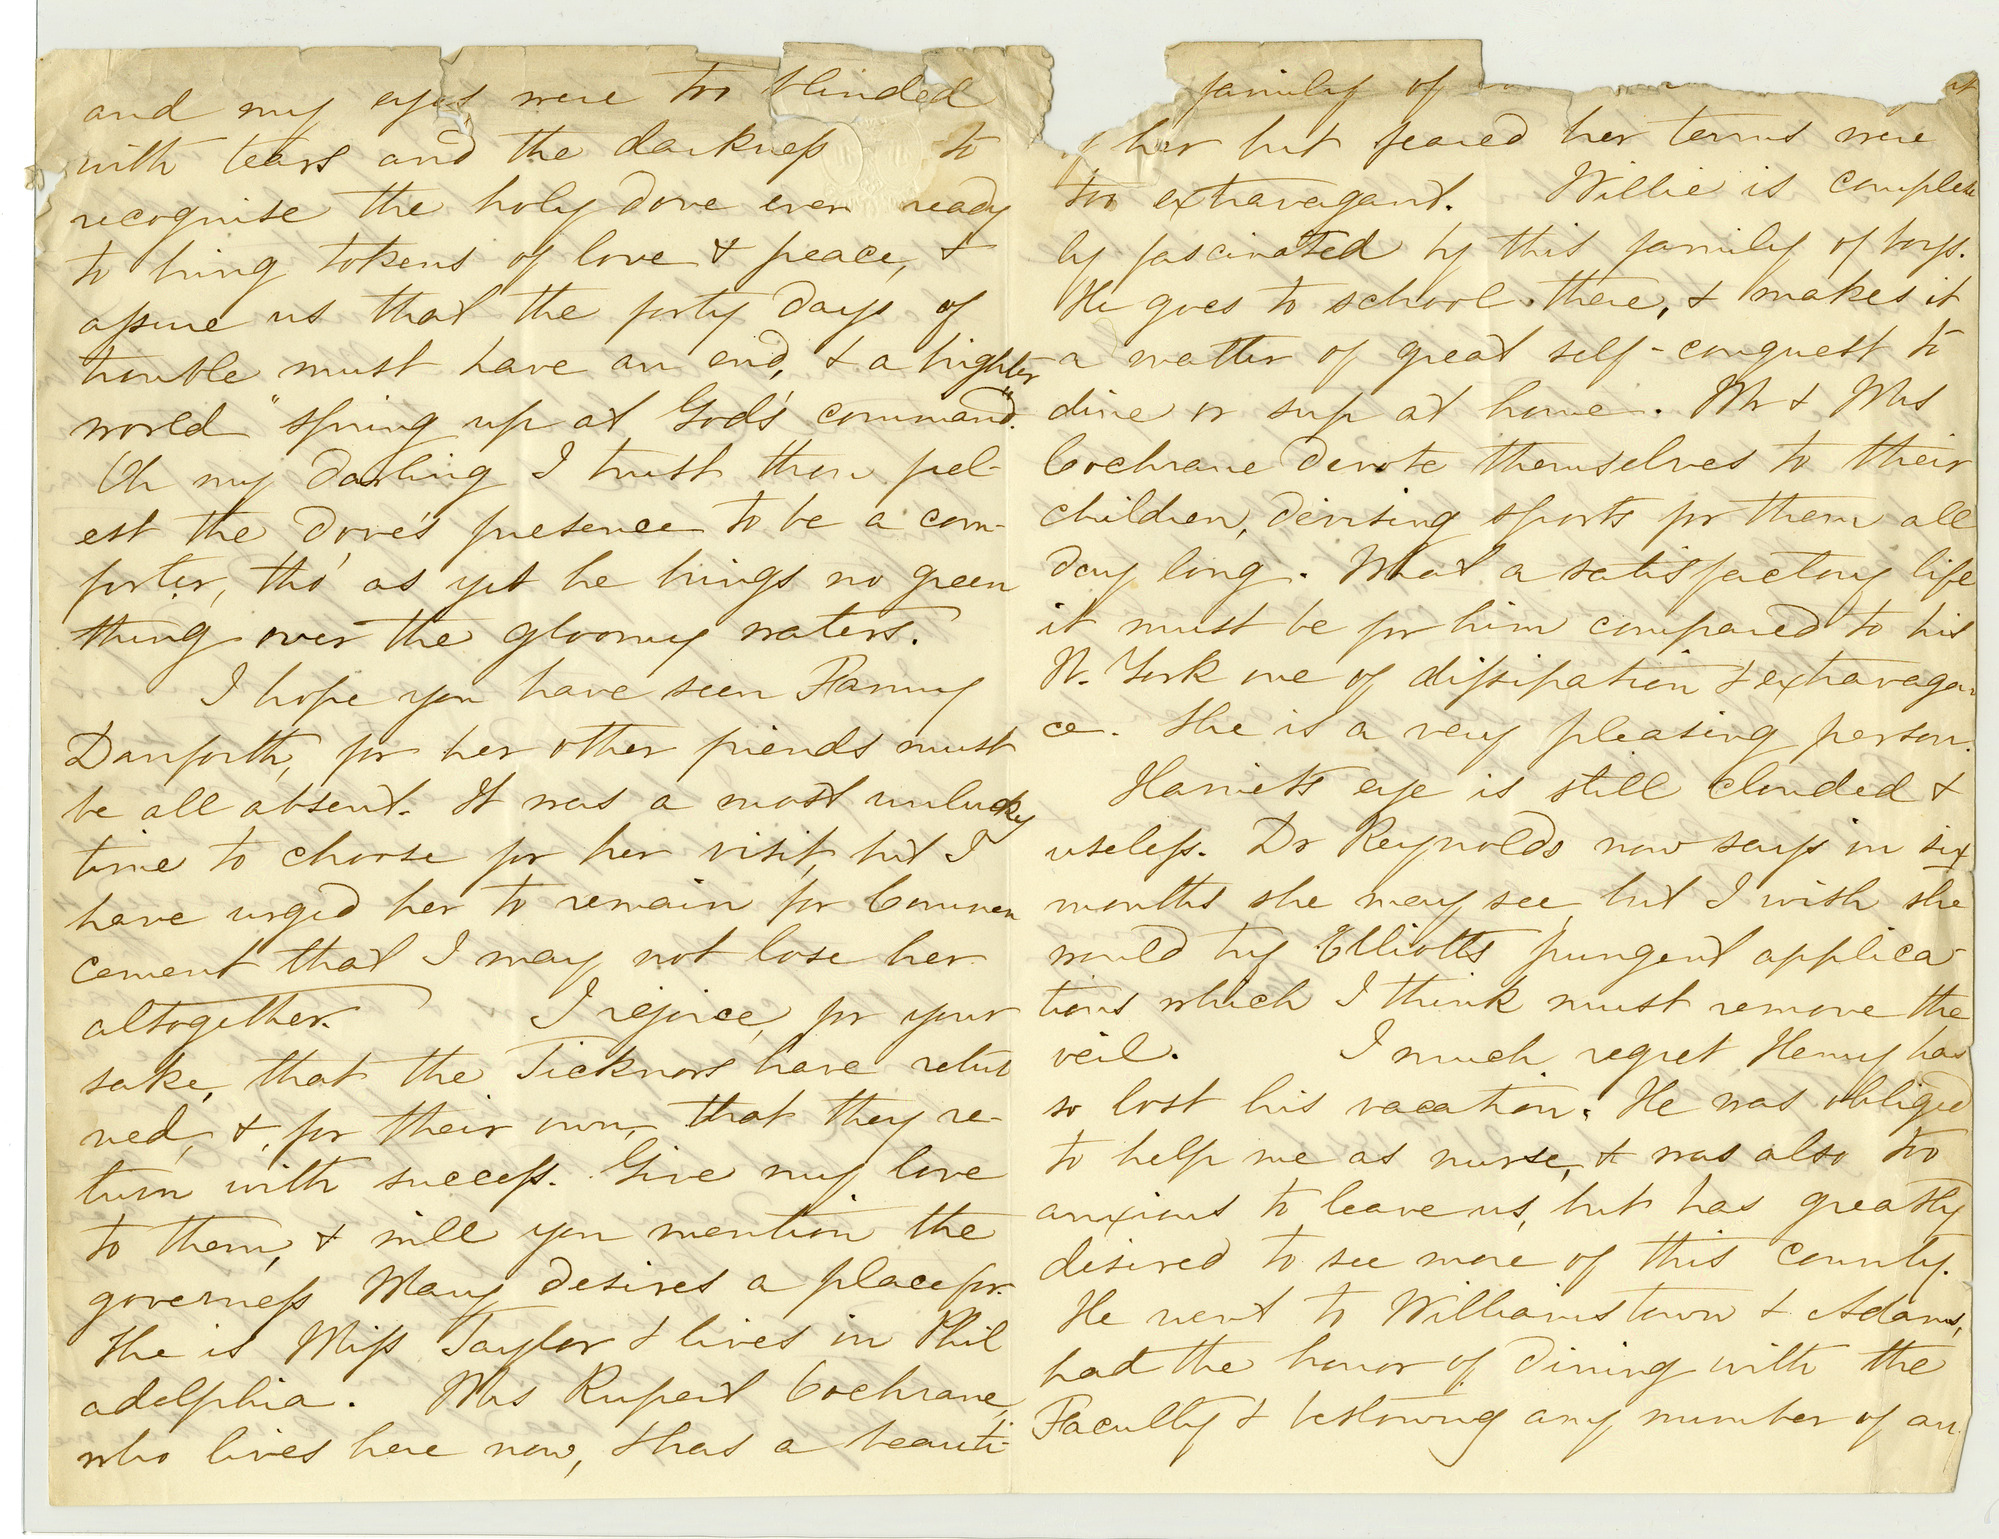 and my eyes, were too blinded
with tears and the darkness to
recognise the holy dove ever ready
to bring tokens of love & peace, &
assure us that the forty days of
trouble must have an end, & a brighter
world "spring up at God's command."
Oh my darling I trust thou feel-
est the dove's presence to be a com-
forter, tho' as yet he brings no green
thing over the gloomy waters.
I hope you have seen Fanny
Danforth, for her other friends must
be all absent. It was a most unlucky
time to choose for her visit, but I
have urged her to remain for Commen
cement that I may not lose her
altogether. I rejoice, for your
sake, that the Ticknors have retur
ned, &, for their own, that they re-
turn with success. Give my love
to them, & will you mention the
governess Mary desires a place for.
She is Miss Taylor & lives in Phil
adelphia. Mrs Rupert Cochrane,
who lives here now, & has a beauti-
family of
of her but feared her terms were
too extravagant. Willie is complete
ly fascinated by this family of boys.
He goes to school there, & makes it
a matter of great self-conquest to
dine or sup at home. Mr & Mrs
Cochrane devote themselves to their
children, devising sports for them all
day long. What a satisfactory life
it must be for him compared to his
N. York one of dissipation & extravagan
ce. She is a very pleasing person.
Harriet's eye is still clouded &
useless. Dr Reynolds now says in six
months she may see, but I wish she
would try Elliott's pungent applica-
tions which I think must remove the
veil. I much regret Henry has
so lost his vacation. He was obliged
to help me as nurse, & was also too
anxious to leave us, but has greatly
desired to see more of this county.
He went to Williamstown & Adams,
had the honor of dining with the
Faculty & bestowing any number of au